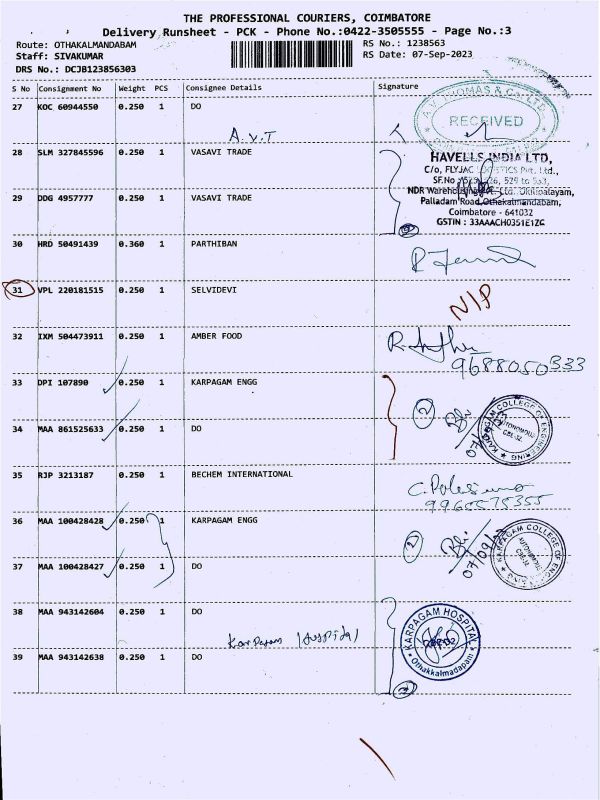 THE PROFESSIONAL COURIERS, COIMBATORE
Delivery Runsheet - PCK - Phone No.:0422-3505555 - Page No.:3
Route: OTHAKALMANDABAM
RS No.: 1238563
Staff: SIVAKUMAR
RS Date: 07-Sep-2023
DRS No.: DCJB123856303
S No Consignment No Weight PCS Consignee Details Signature
27 KOC 60944550 0.250 1 DO
A.V.T
RECEIVED
28 SLM 327845596 0.250 1 VASAVI TRADE
HAVELLS INDIA LTD,
C/o, FLYJAC LOGISTICS Pvt. Ltd.,
NDR Warehousing
Palladam Road, Othakalmandabam,
Coimbatore - 641032
GSTIN : 33AAACH0351E1ZG
29 DDG 4957777 0.250 1 VASAVI TRADE
30 HRD 50491439 0.360 1 PARTHIBAN
31 VPL 220181515 0.250 1 SELVIDEVI
N/P
32 IXM 504473911 0.250 1 AMBER FOOD
9688050333
33 DPI 107890 0.250 1 KARPAGAM ENGG
2
KARPAGAM COLLEGE OF ENGINEERING
AUTONOMOUS
CBE-32
34 MAA 861525633 0.250 1 DO
35 RJP 3213187 0.250 1 BECHEM INTERNATIONAL
9960575355
36 MAA 100428428 0.250 1 KARPAGAM ENGG
2
07/09/23
KARPAGAM COLLEGE OF ENGINEERING
AUTONOMOUS
CBE-32
37 MAA 100428427 0.250 1 DO
38 MAA 943142604 0.250 1 DO
Karpagam Hospital
KARPAGAM HOSPITAL
Othakkalmadapam
39 MAA 943142638 0.250 1 DO
2